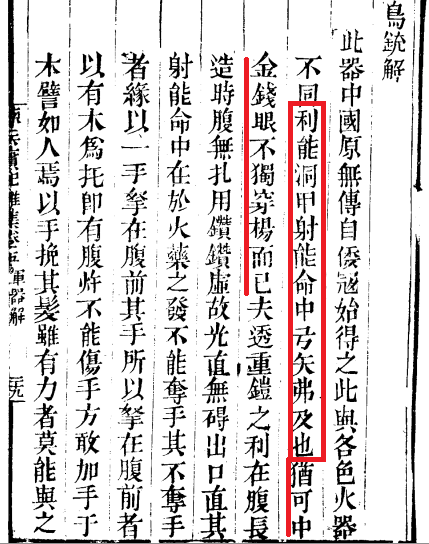 鳥銃解
此器中國原無傳自倭冦始得之此與各色火器
不同利能洞甲射能命中弓矢弗及也猶可中
金錢眼不獨穿楊而已夫透重鎧之利在腹長
造時腹無扎用鑽鑽虛故光直無碍出口直其
射能命中在於火藥之發不能奪手其不奪手
者緣以一手拏在腹前其手所以拏在腹前者
以有木爲托卽有腹炸不能傷手方敢加手于
木譬如人焉以手挽其髮雖有力者莫能與之
兵實紀雜集卷五軍器解